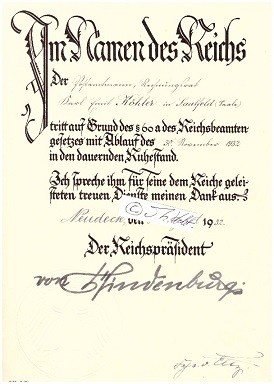 Im Namen des Reichs
Der
Karl Emil Köhler in Saalfeld (Saale)
tritt auf Grund des § 60a des Reichsbeamten-
gesetzes mit Ablauf des 30. November 1932
in den dauernden Ruhestand.
Ich spreche ihm für seine dem Reiche gelei-
steten treuen Dienste meinen Dank aus.
Neudeck, den 1932.
Der Reichspräsident
von Hindenburg